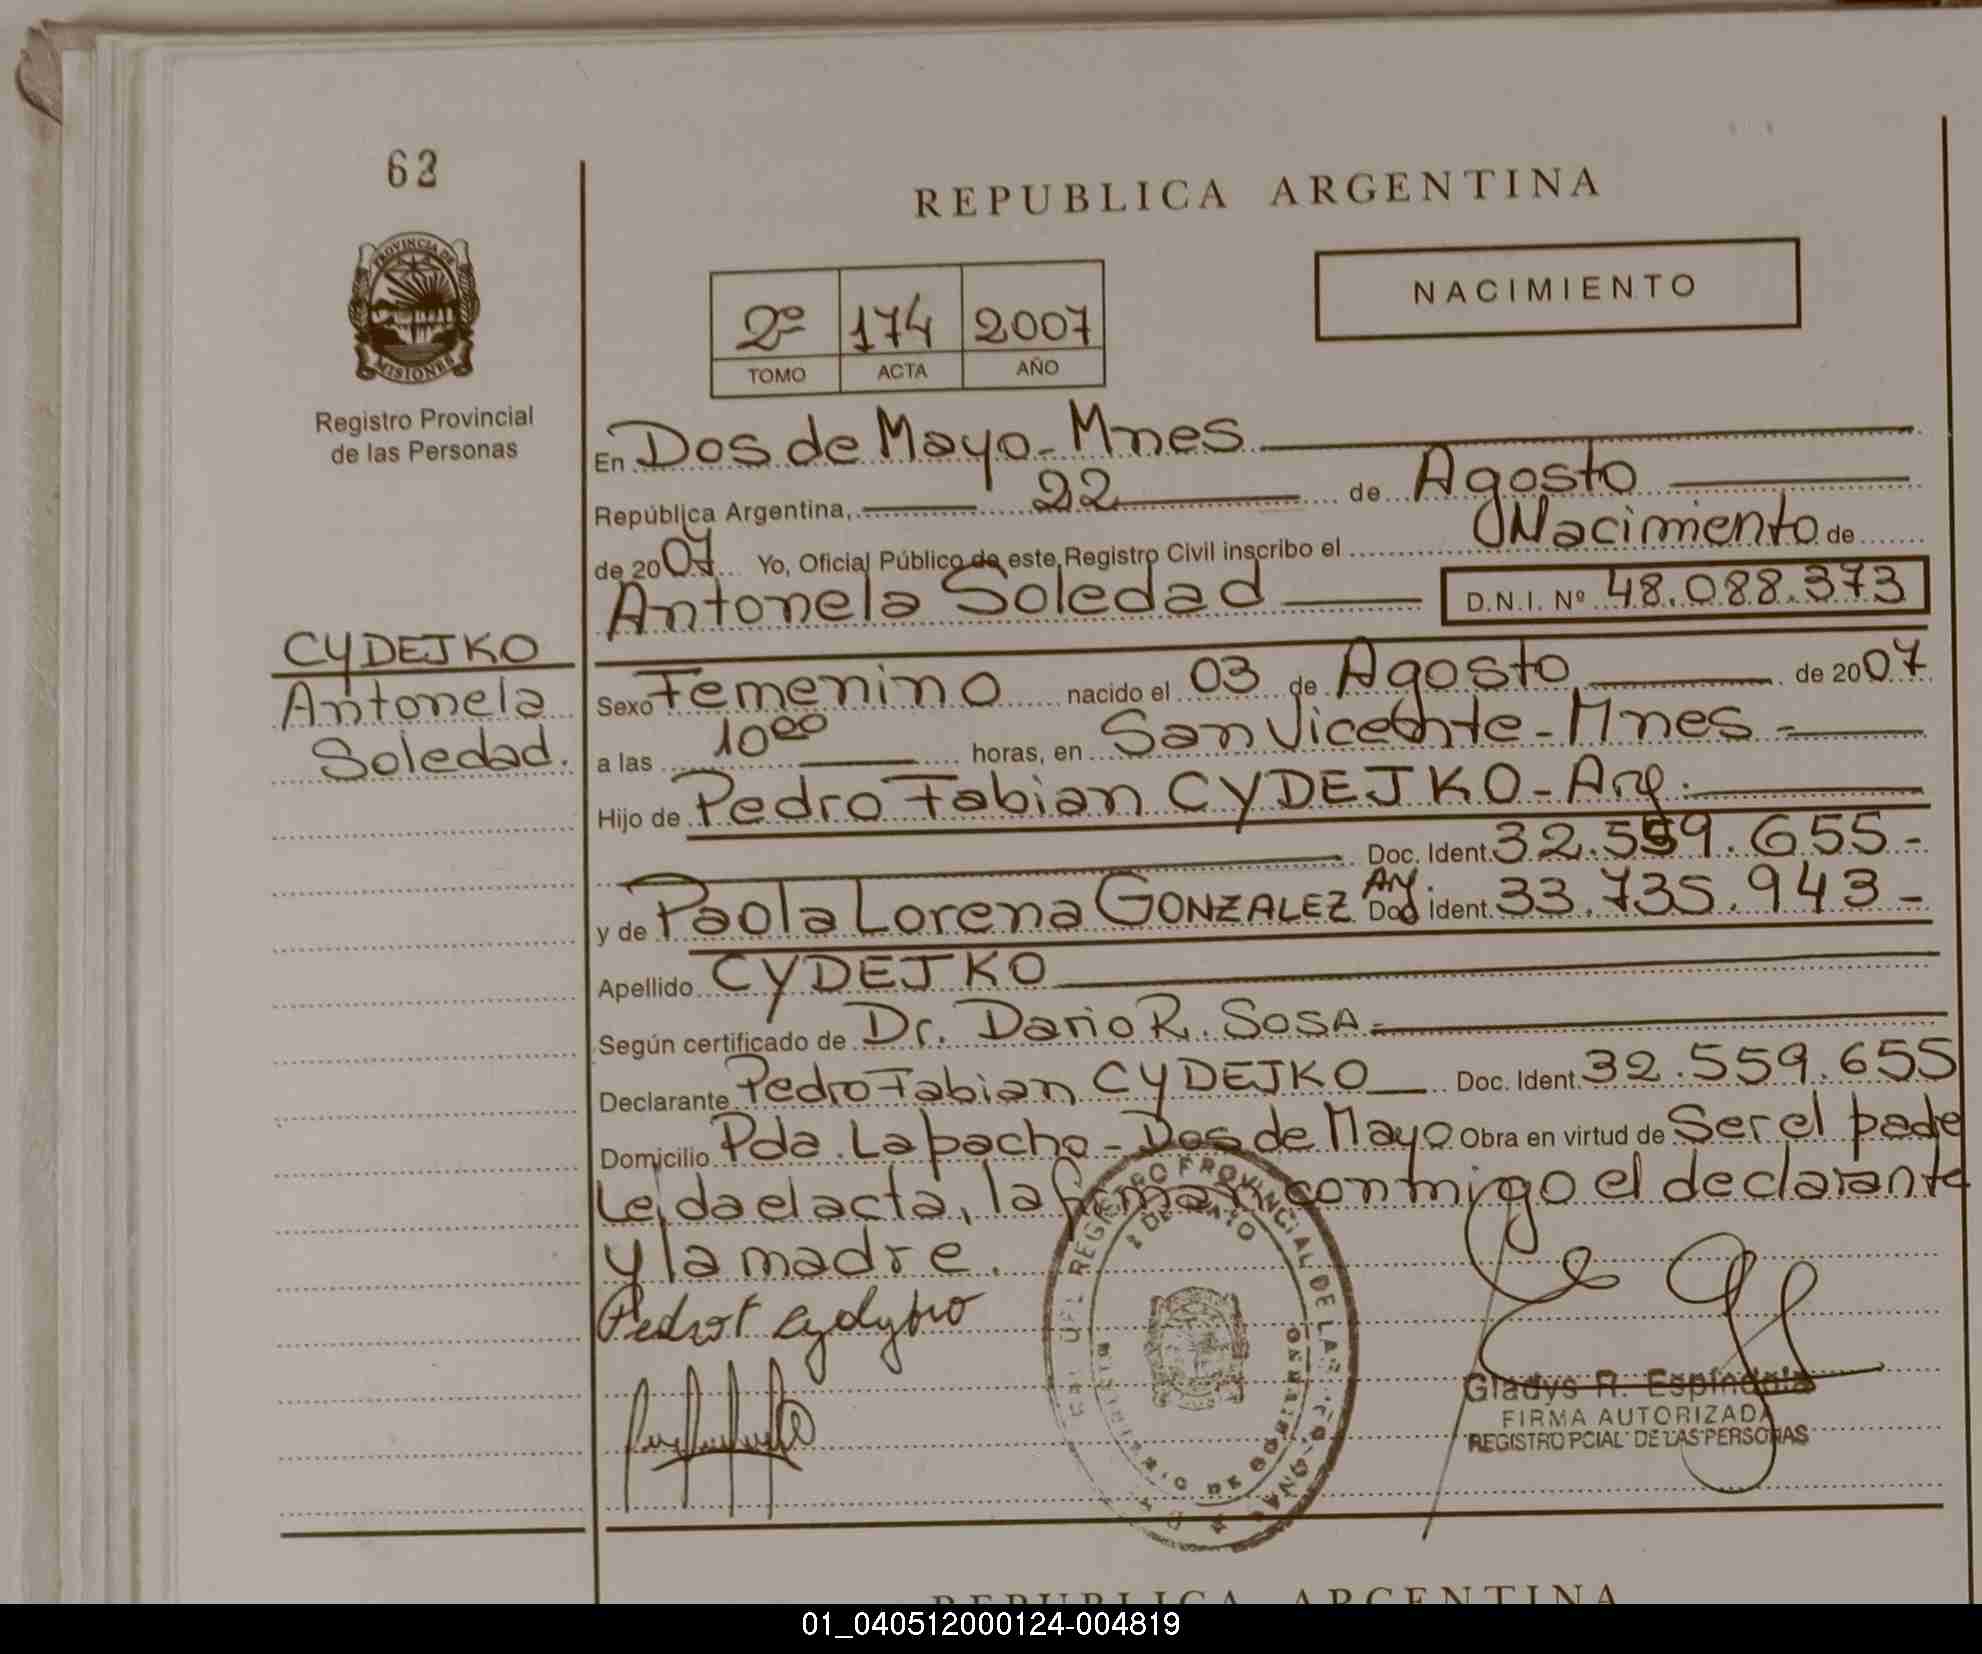 62
REPUBLICA ARGENTINA
PROVINCIA DE
MISIONES
Registro Provincial
de las Personas
NACIMIENTO
2º 174 2007
TOMO ACTA AÑO
En Dos de Mayo - Mnes
República Argentina, 22 de Agosto
de 2007 Yo, Oficial Público de este Registro Civil inscribo el Nacimiento de
Antonela Soledad D.N.I. Nº 48.088.373
CYDEJKO
Antonela
Soledad.
Sexo Femenino nacido el 03 de Agosto de 2007
a las 10⁰⁰ horas, en San Vicente - Mnes -
Hijo de Pedro Fabian CYDEJKO - Arg.
Doc. Ident. 32.559.655 -
y de Paola Lorena GONZALEZ Arg. Doc. Ident. 33.735.943 -
Apellido CYDEJKO
Según certificado de Dr. Dario R. SOSA -
Declarante Pedro Fabian CYDEJKO Doc. Ident. 32.559.655
Domicilio Pda. Lapacho - Dos de Mayo Obra en virtud de Ser el padre
Leida el acta, la firman conmigo el declarante
y la madre.
REGISTRO PROVINCIAL DE LAS
2 DE MAYO
MINISTERIO DE GOBIERNO
Gladys R. Espindola
FIRMA AUTORIZADA
REGISTRO PCIAL DE LAS PERSONAS
REPUBLICA ARGENTINA
01_040512000124-004819